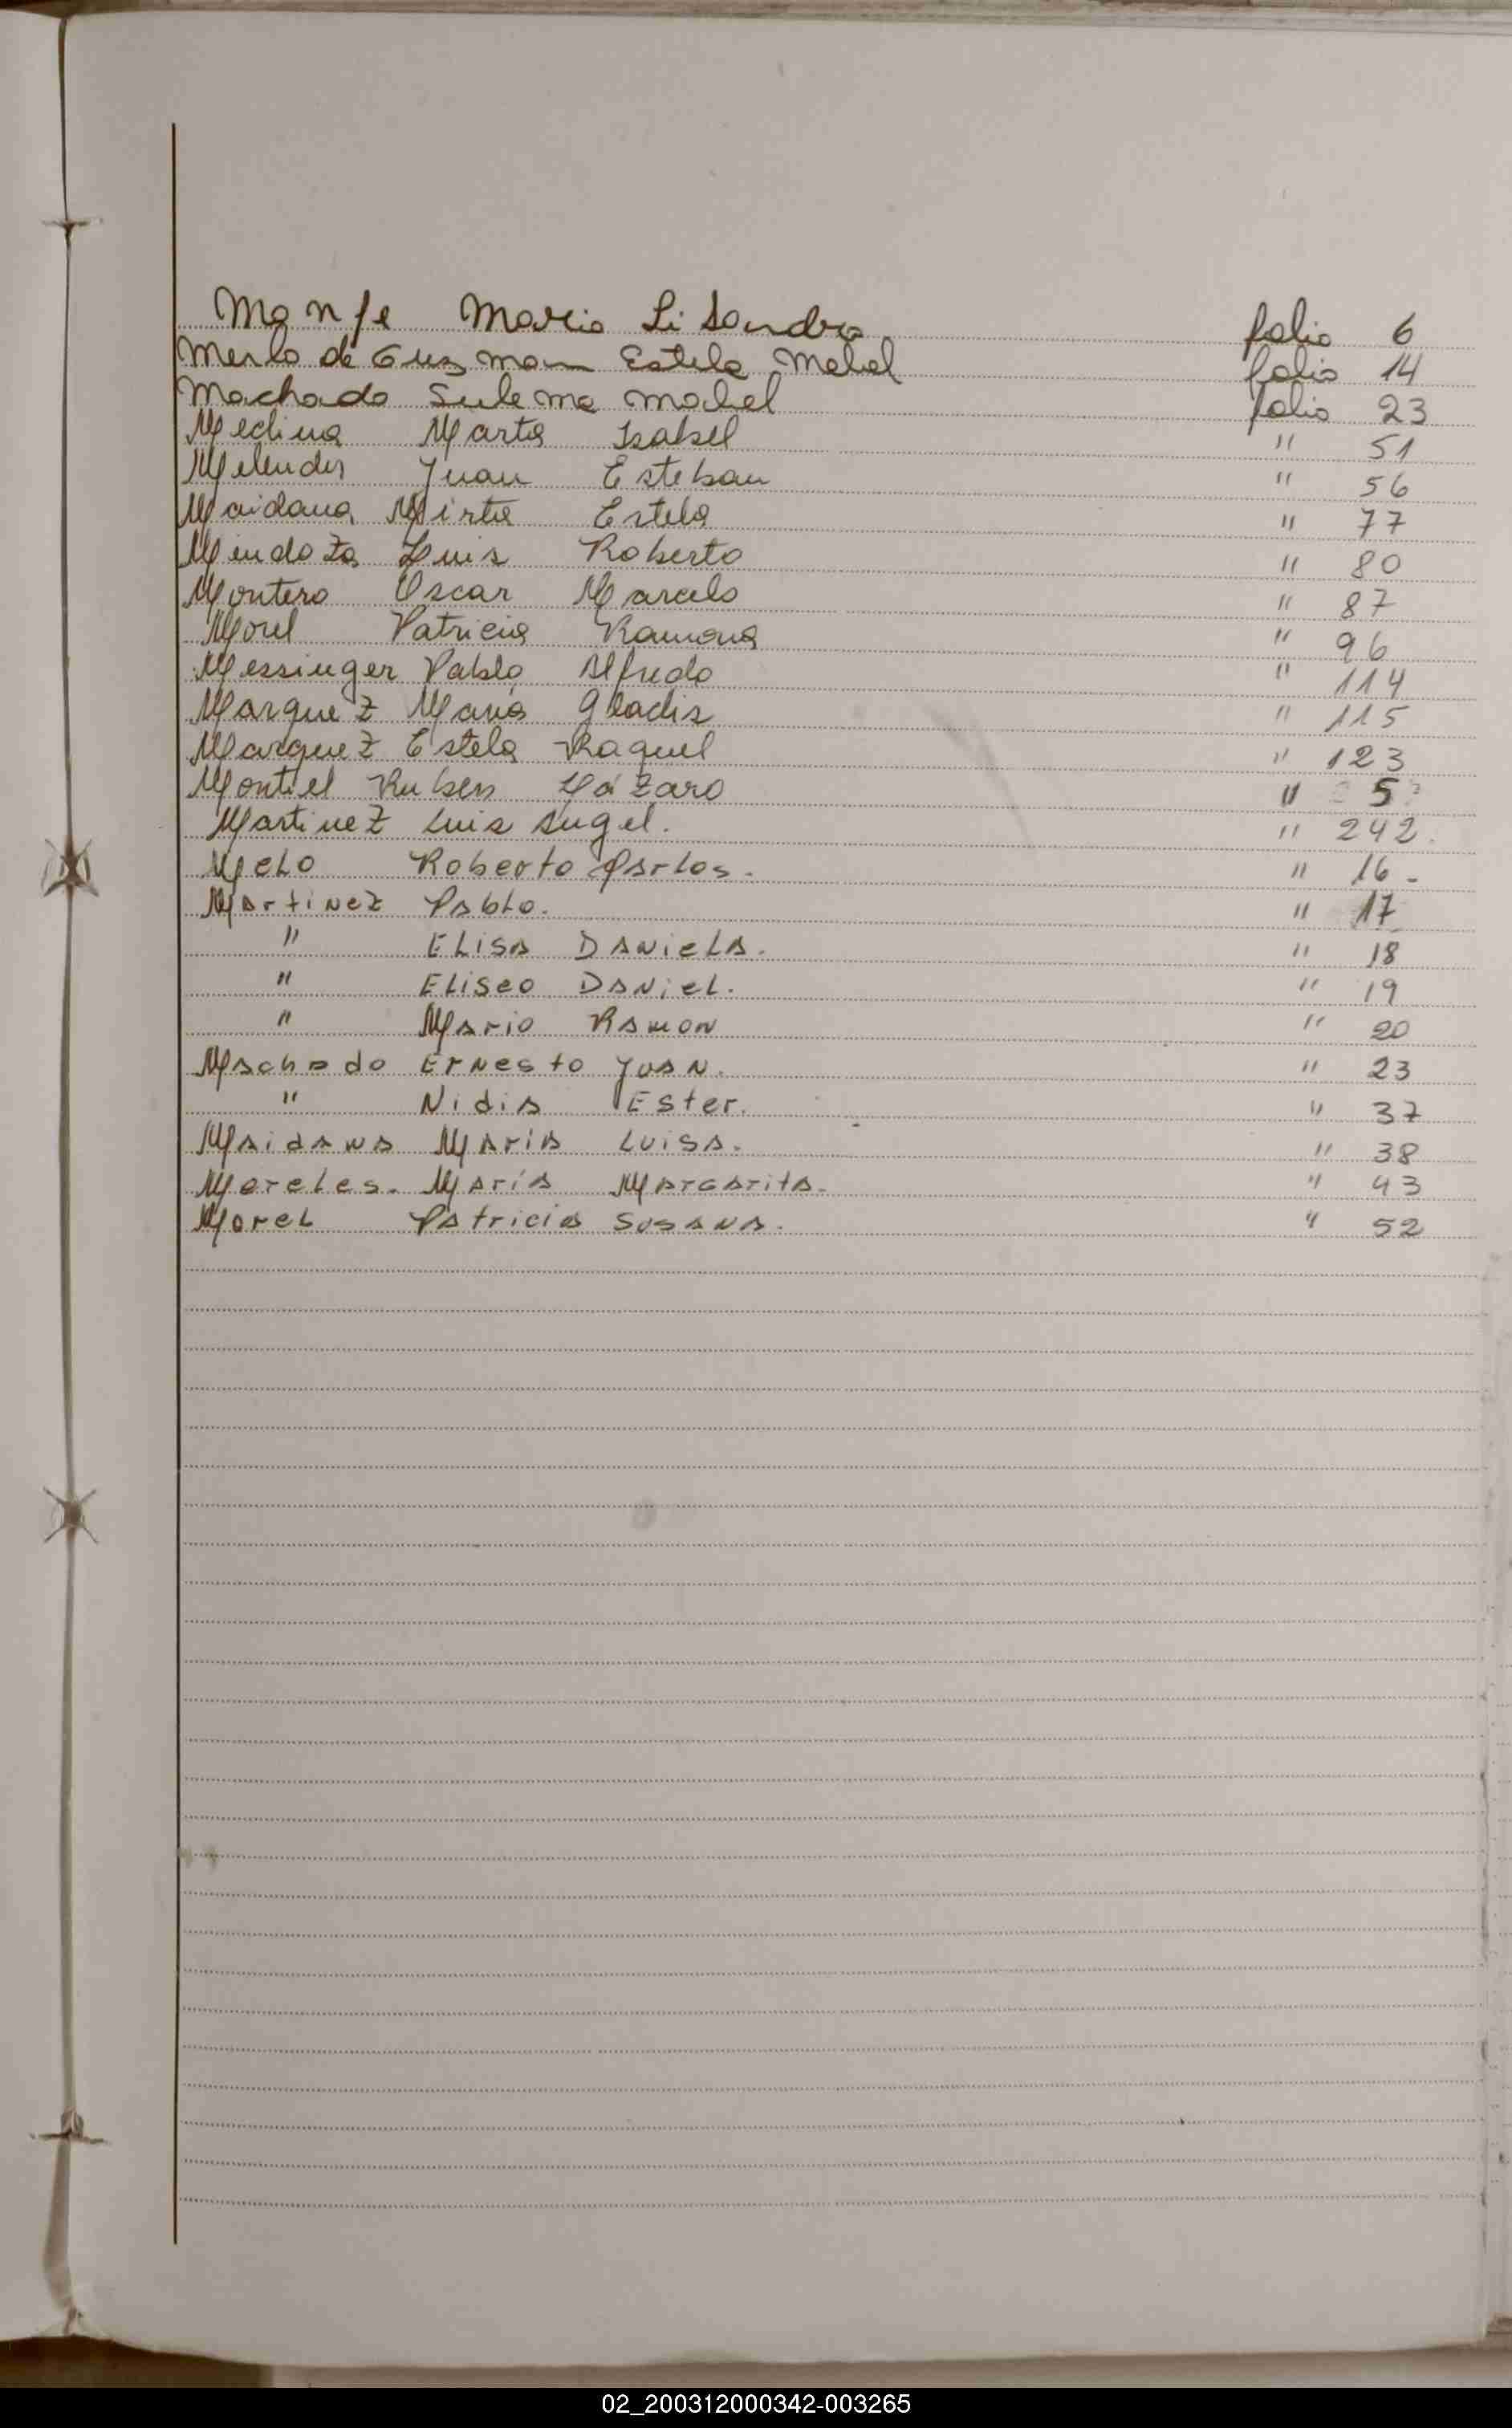 Manfe Mario Lisandro folio 6
Merlo de Guzman Estela Mabel folio 14
Machado Sulema Mabel folio 23
Medina Marta Isabel " 51
Melendez Juan Esteban " 56
Maidana Mirta Estela " 77
Mendoza Luis Roberto " 80
Montero Oscar Marcelo " 87
Morel Patricia Ramona " 96
Messinger Pablo Alfredo " 114
Marquez María Gladis " 115
Marquez Estela Raquel " 123
Montiel Ruben Lázaro " 5
Martinez Luis Angel. " 242.
Melo Roberto Carlos. " 16-
Martinez Pablo. " 17
" Elisa Daniela. " 18
" Eliseo Daniel. " 19
" Mario Ramon " 20
Machado Ernesto Juan. " 23
" Nidia Ester. " 37
Maidana Maria Luisa. " 38
Moreles. María Margarita. " 43
Morel Patricia Susana. " 52
02_200312000342-003265